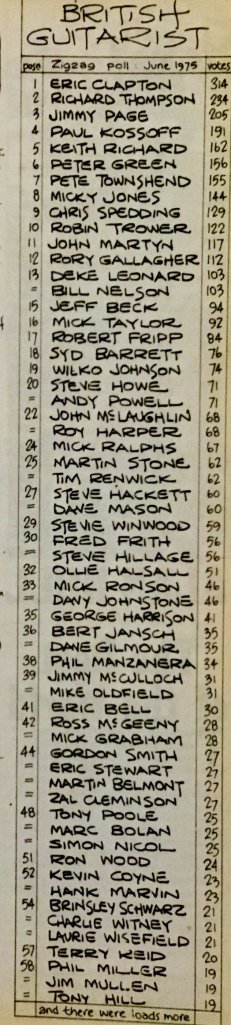 BRITISH
GUITARIST
posn Zigzag poll : June 1975 votes
1 ERIC CLAPTON 314
2 RICHARD THOMPSON 234
3 JIMMY PAGE 205
4 PAUL KOSSOFF 191
5 KEITH RICHARD 162
6 PETER GREEN 156
7 PETE TOWNSHEND 155
8 MICKY JONES 144
9 CHRIS SPEDDING 129
10 ROBIN TROWER 122
11 JOHN MARTYN 117
12 RORY GALLAGHER 112
13 DEKE LEONARD 103
= BILL NELSON 103
15 JEFF BECK 94
16 MICK TAYLOR 92
17 ROBERT FRIPP 84
18 SYD BARRETT 76
19 WILKO JOHNSON 74
20 STEVE HOWE 71
= ANDY POWELL 71
22 JOHN McLAUGHLIN 68
= ROY HARPER 68
24 MICK RALPHS 67
25 MARTIN STONE 62
= TIM RENWICK 62
27 STEVE HACKETT 60
= DAVE MASON 60
29 STEVIE WINWOOD 59
30 FRED FRITH 56
= STEVE HILLAGE 56
32 OLLIE HALSALL 51
33 MICK RONSON 46
= DAVY JOHNSTONE 46
35 GEORGE HARRISON 41
36 BERT JANSCH 35
= DAVE GILMOUR 35
38 PHIL MANZANERA 34
39 JIMMY McCULLOCH 31
= MIKE OLDFIELD 31
41 ERIC BELL 30
42 ROSS McGEENY 28
= MICK GRABHAM 28
44 GORDON SMITH 27
= ERIC STEWART 27
= MARTIN BELMONT 27
= ZAL CLEMINSON 27
48 TONY POOLE 25
= MARC BOLAN 25
= SIMON NICOL 25
51 RON WOOD 24
52 KEVIN COYNE 23
= HANK MARVIN 23
54 BRINSLEY SCHWARZ 21
= CHARLIE WITNEY 21
= LAURIE WISEFIELD 21
57 TERRY REID 20
58 PHIL MILLER 19
= JIM MULLEN 19
= TONY HILL 19
and there were loads more